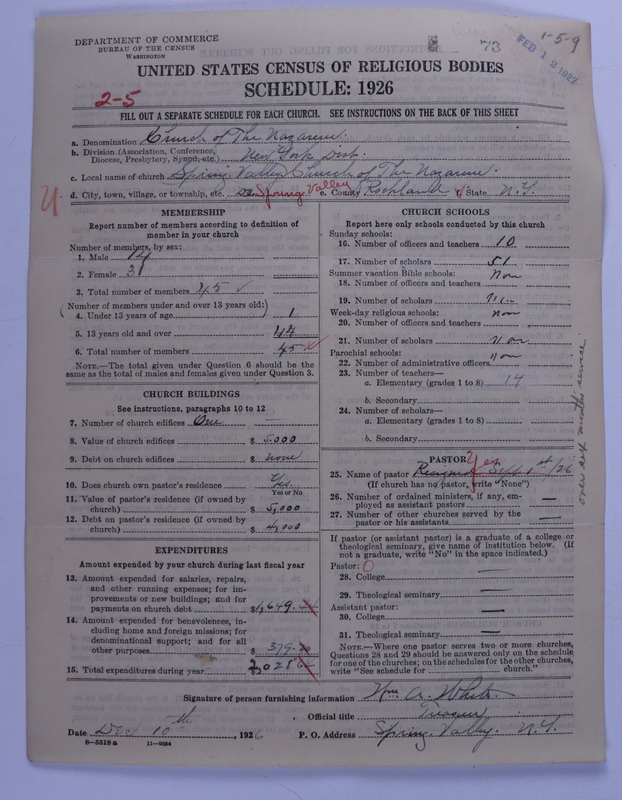 DEPARTMENT OF COMMERCE
BUREAU OF THE CENSUS
WASHINGTON
73
1-5-9
FEB 12 1927
UNITED STATES CENSUS OF RELIGIOUS BODIES
SCHEDULE: 1926
2-5
FILL OUT A SEPARATE SCHEDULE FOR EACH CHURCH. SEE INSTRUCTIONS ON THE BACK OF THIS SHEET
a. Denomination Church of The Nazarene.
b. Division (Association, Conference, Diocese, Presbytery, Synod, etc.) New York Dist.
c. Local name of church Spring Valley Church of The Nazarene.
d. City, town, village, or township, etc. Spring Valley e. County Rockland f. State N. Y.
MEMBERSHIP
Report number of members according to definition of
member in your church
Number of members, by sex:
1. Male 14
2. Female 31
3. Total number of members 45
(Number of members under and over 13 years old:)
4. Under 13 years of age 1
5. 13 years old and over 44
6. Total number of members 45
NOTE.—The total given under Question 6 should be
the same as the total of males and females given under Question 3.
CHURCH BUILDINGS
See instructions, paragraphs 10 to 12
7. Number of church edifices One
8. Value of church edifices $ 5.000
9. Debt on church edifices $ none
10. Does church own pastor's residence? Yes
Yes or No
11. Value of pastor's residence (if owned by
church) $ 5,000
12. Debt on pastor's residence (if owned by
church) $ 4,000
EXPENDITURES
Amount expended by your church during last fiscal year
13. Amount expended for salaries, repairs,
and other running expenses; for im-
provements or new buildings; and for
payments on church debt $1,649.
14. Amount expended for benevolences, in-
cluding home and foreign missions; for
denominational support; and for all
other purposes $ 379.
15. Total expenditures during year 2028
CHURCH SCHOOLS
Report here only schools conducted by this church
Sunday schools:
16. Number of officers and teachers 10
17. Number of scholars 51
Summer vacation Bible schools:
18. Number of officers and teachers non
19. Number of scholars non
Week-day religious schools:
20. Number of officers and teachers non
21. Number of scholars non
Parochial schools:
22. Number of administrative officers non
23. Number of teachers—
a. Elementary (grades 1 to 8) 14
b. Secondary
24. Number of scholars—
a. Elementary (grades 1 to 8)
b. Secondary
over six months service.
PASTOR
Yes
25. Name of pastor Resigned Sept 1st/26
(If church has no pastor, write "None")
26. Number of ordained ministers, if any, em-
ployed as assistant pastors —
27. Number of other churches served by the
pastor or his assistants —
If pastor (or assistant pastor) is a graduate of a college or
theological seminary, give name of institution below. (If
not a graduate, write "No" in the space indicated.)
Pastor: 0
28. College —
29. Theological seminary —
Assistant pastor:
30. College —
31. Theological seminary —
NOTE.—Where one pastor serves two or more churches,
Questions 28 and 29 should be answered only on the schedule
for one of the churches; on the schedules for the other churches,
write "See schedule for ........ church."
Signature of person furnishing information Wm. A. White.
Official title Treasurer
Date Dec 10th, 1926 P. O. Address Spring Valley. N. Y.
8—5518a 11—9034